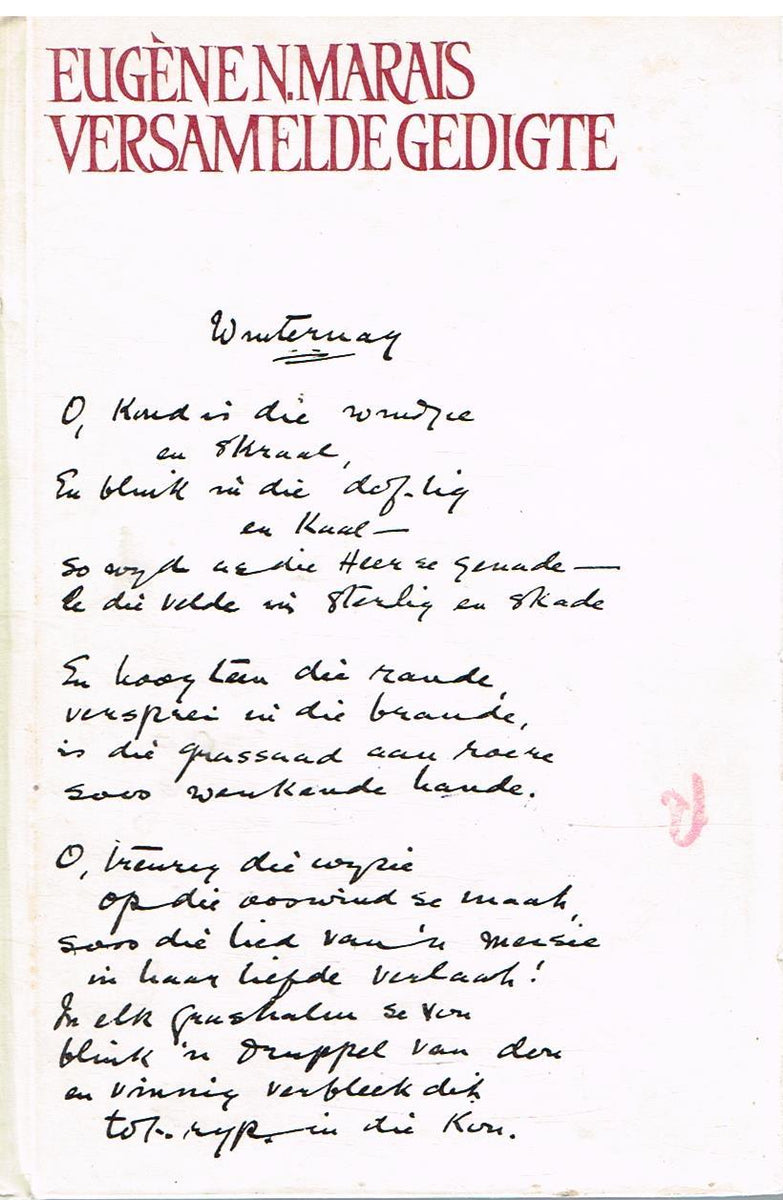 EUGÈNE N. MARAIS
VERSAMELDE GEDIGTE
Winternag
O, Koud is die windjie
en skraal,
En blink in die dof-lig
en Kaal —
so wyd as die Heer se genade —
le die velde in Sterlig en skade
En hoog teen die rande,
versprei in die brande,
is die grassaad aan roere
soos wenkende hande.
O, treurig die wysie
op die ooswind se maat,
soos die lied van 'n meisie
in haar liefde verlaat!
In elk grashalm se vou
blink 'n druppel van dou
en vinnig verbleek dit
tot ryp in die Kou.